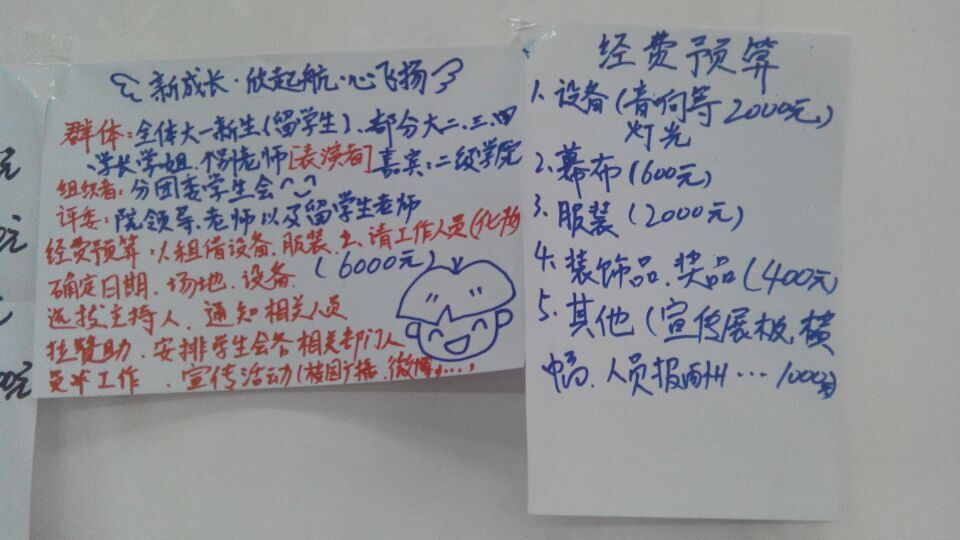 新成长·欣起航·心飞扬
群体:全体大一新生(留学生)、部分大二、三、四
学长学姐、个别老师[表演者]嘉宾:二级学院
组织者:分团委学生会
评委:院领导、老师以及留学生老师
经费预算:以租借设备、服装为主、请工作人员(化妆)
(6000元)
确定日期、场地、设备
选拔主持人、通知相关人员
拉赞助、安排学生会各相关部门人
员工作、宣传活动(校园广播、微博、...)
经费预算
1.设备(音响等2000元)
灯光
2.幕布(600元)
3.服装(2000元)
4.装饰品、奖品(400元)
5.其他(宣传展板、横
幅、人员报酬…1000元
元
元